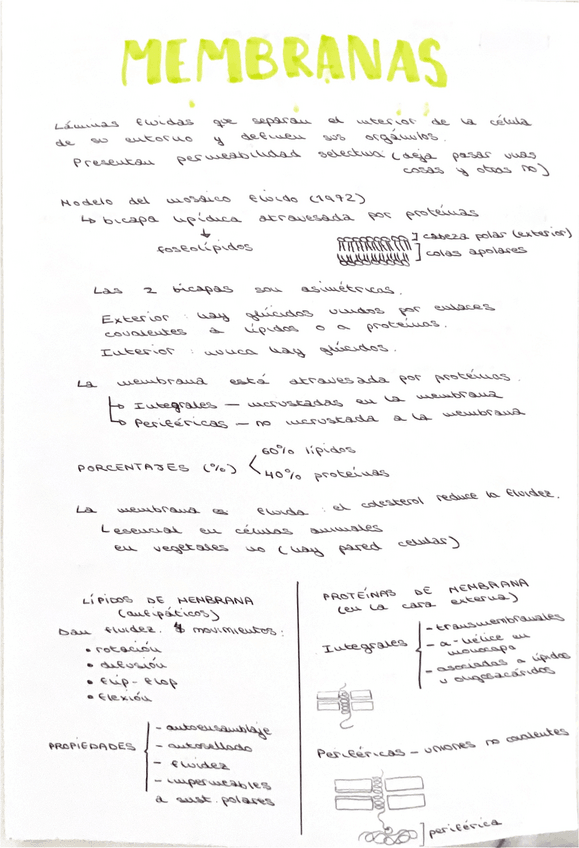 MEMBRANAS
Láminas fluidas que separan el interior de la célula
de su entorno y definen sus orgánulos.
Presentan permeabilidad selectiva (deja pasar unas
cosas y otras no)
Modelo del mosaico fluido (1972)
↳ bicapa lipídica atravesada por proteínas
↓
fosfolípidos
] cabeza polar (exterior)
] colas apolares
Las 2 bicapas son asimétricas.
Exterior : hay glúcidos unidos por enlaces
covalentes a lípidos o a proteínas.
Interior : nunca hay glúcidos.
La membrana está atravesada por proteínas.
↳ Integrales — incrustadas en la membrana
↳ Periféricas — no incrustada a la membrana
PORCENTAJES (%)
60% lípidos
40% proteínas
La membrana es fluida : el colesterol reduce la fluidez.
↳ esencial en células animales
en vegetales no (hay pared celular)
LÍPICOS DE MEMBRANA
(anfipáticos)
Dan fluidez. 4 movimientos:
• rotación
• difusión
• flip-flop
• flexión
PROPIEDADES
- autoensamblaje
- autosellado
- fluidez
- impermeables
a sust. polares
PROTEÍNAS DE MEMBRANA
(en la cara externa)
Integrales
- transmembranales
- α-hélice en
monocapa
- asociadas a lípidos
u oligosacáridos
Periféricas — uniones no covalentes
] periférica